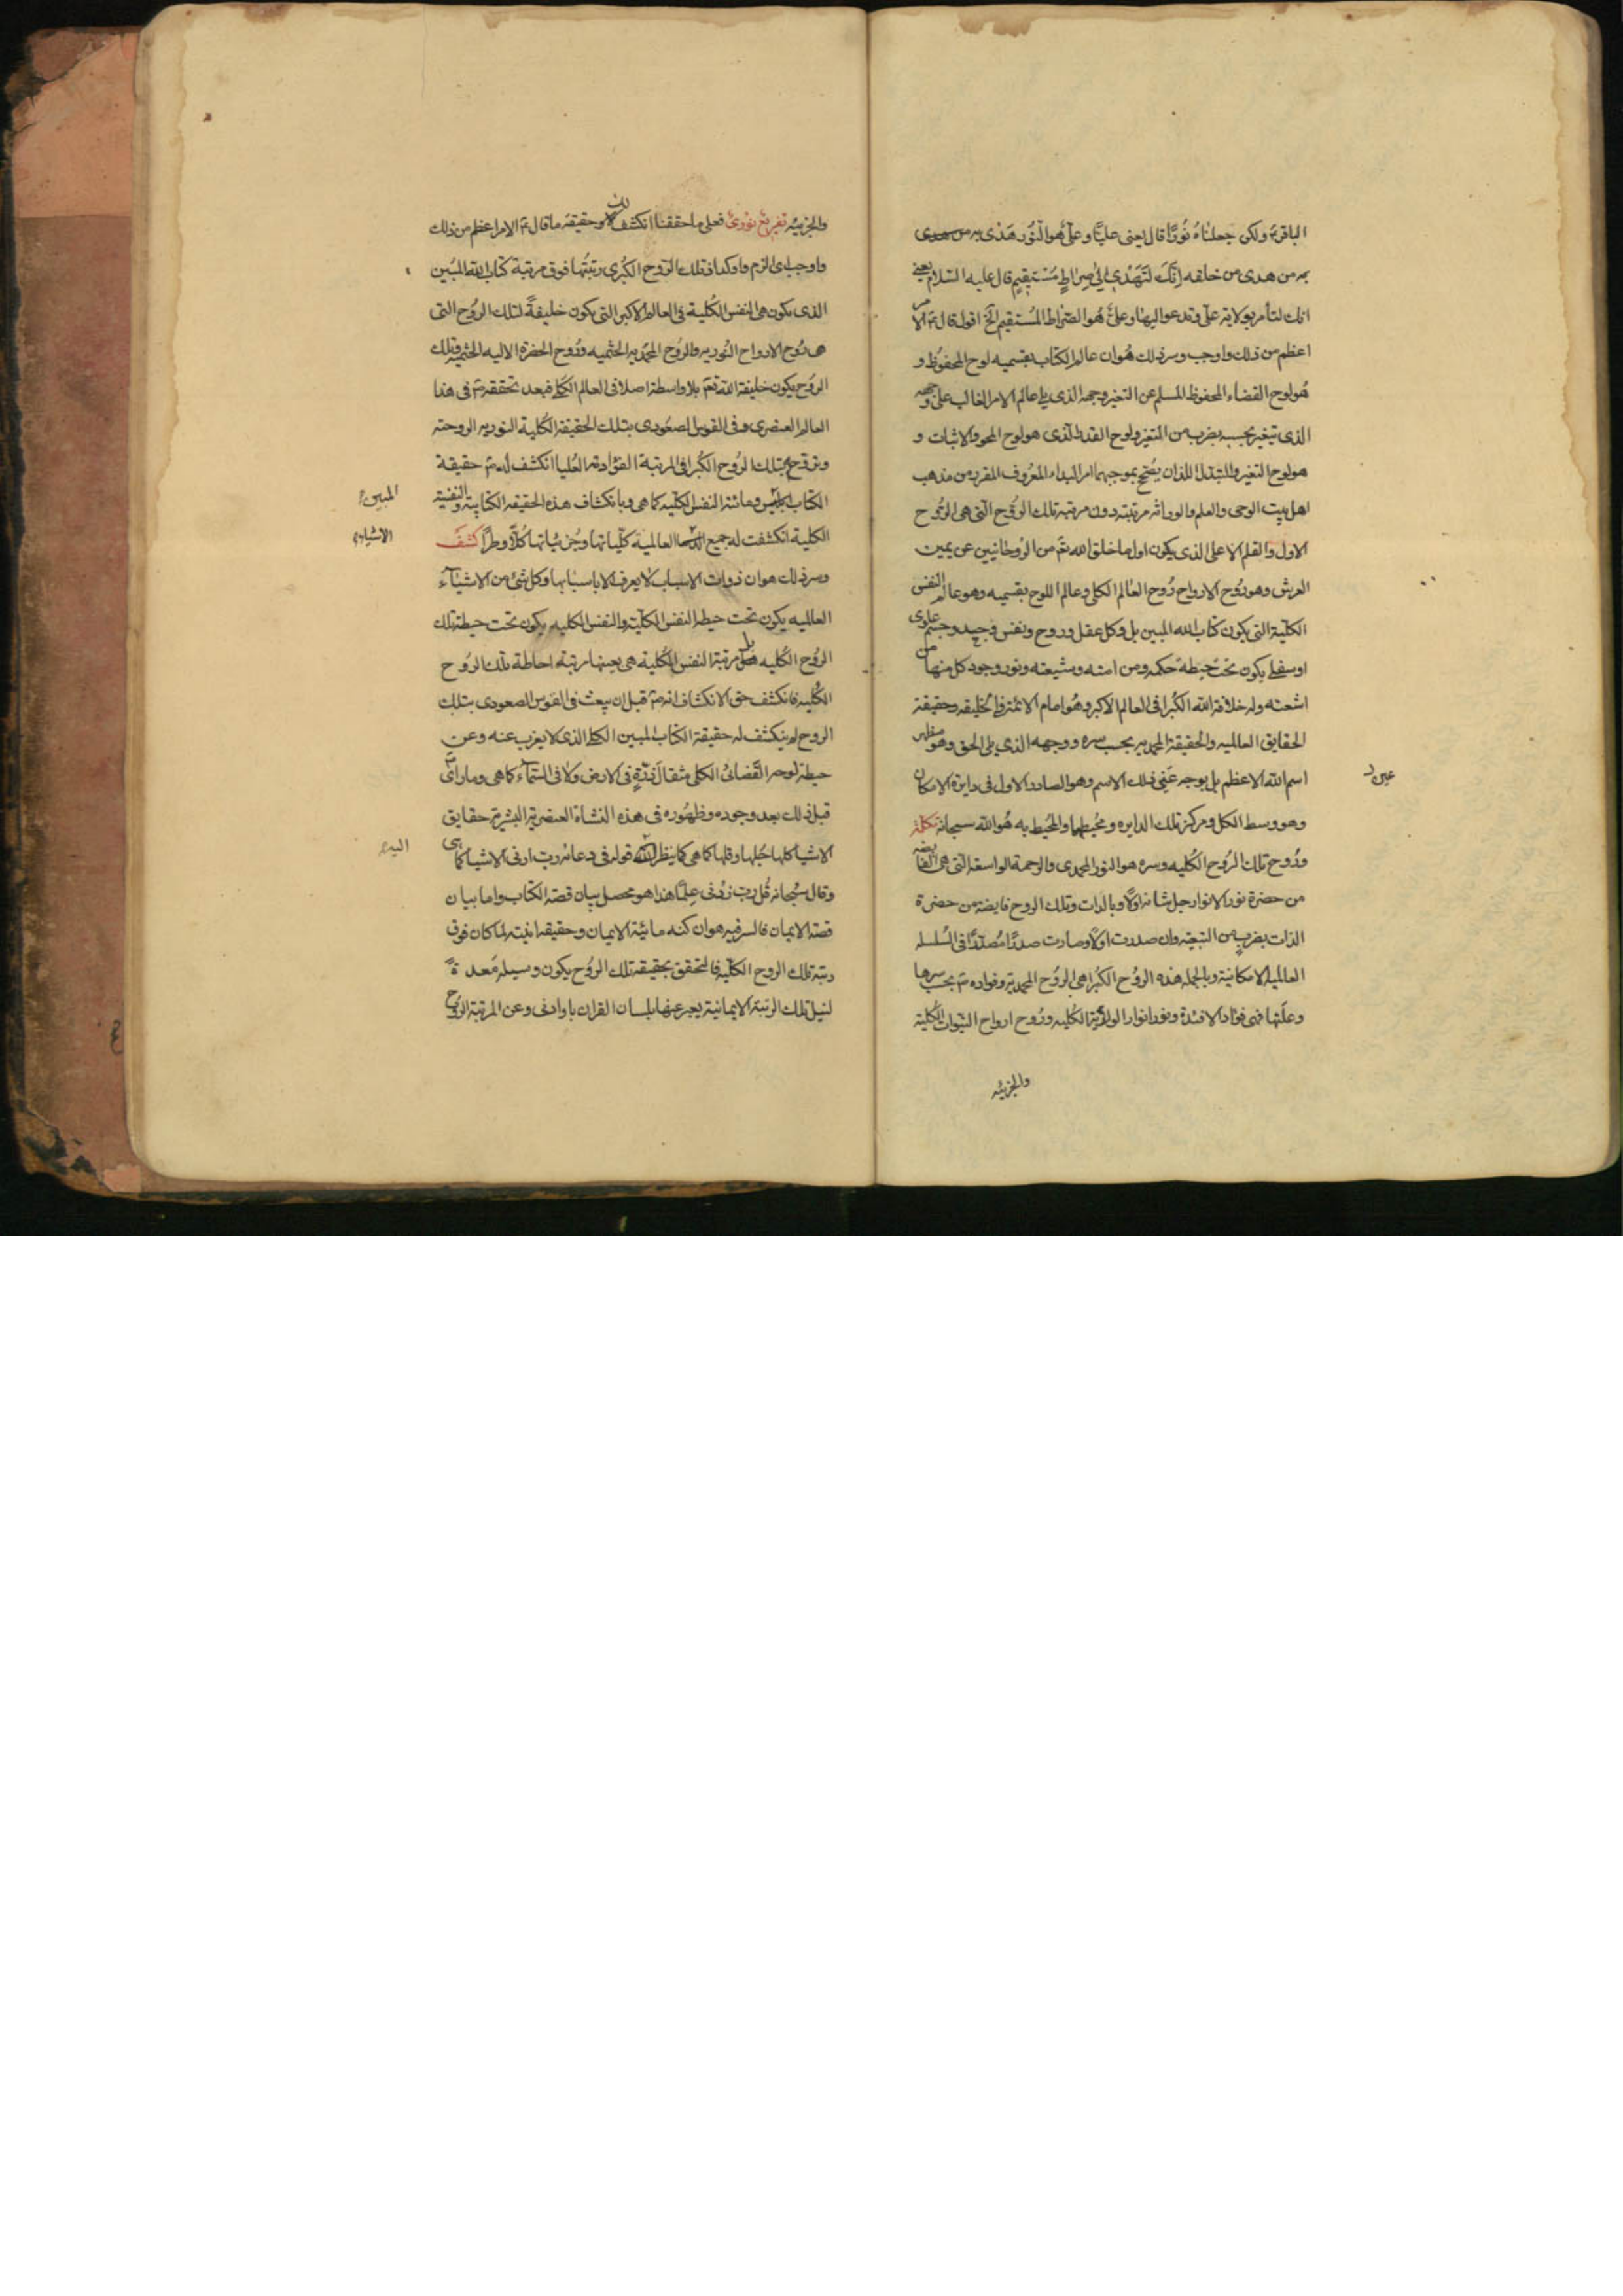 الباقر ع ولكن جعلناهُ نُورًا قال يعنى عليًّا وعلىّ هُو النُّور هَدٰى به من هدى
به من هدى من خلقه اِنَّكَ لَتَهْدى اِلىٰ صِرَاطٍ مُسْتَقِيمٍ قال عليه السّلام يعنى
انك لتأمر بولاية علىّ وتدعو اليها وعلىّ هُو الصّراط المُستقيم الخ اقول قال ع الامر
اعظم من ذلك واوجب وسر ذلك هُو ان عالم الكتاب بقسميه لوح المحفوُظ و
هُو لوح القضاء المحفوظ المسلم عن التغير وجهه الذى يلى عالم الامر الغالب على وجهه
الذى تيغير بحسبه بضرب من التغير ولوح القدر الذى هو لوح المحو والاثبات و
هو لوح التغير والتبدل اللذان يُصحّح بموجبهما امر البداء المعرُوف المقرر من مذهب
اهل بيت الوحى والعلم والوراثة مرتبته دون مرتبة تلك الروُح الّتى هى الرُوح
الاول والقلم الاعلى الذى يكون اول ما خلق الله تعٓ من الرُوحانيين عن يمين
العرش وهو رُوح الارواح رُوح العالم الكلى وعالم اللوح بقسميه وهو عالم النفس
الكليّة التى يكون كتاب الله المبين بل وكل عقل وروح ونفس وجسد وجسم علوى
او سفلى يكون تحت حيطة حكمه ومن امته وشيعته ونور وجود كل منها من
اشعته وله خلافة الله الكُبرا فى العالم الاكبر وهُو امام الائمة فى الخليقه وحقيقة
الحقايق العالميه والحقيقة المحمديه بحسب سره ووجهه الذى يلى الحق وهو مظهر
اسم الله الاعظم بل بوجه عَين ذلك الاسم وهو الصادر الاول فى دايرة الامكان
عين ر
وهو وسط الكل ومركز تلك الدايره ومُحيطها والمحُيط به هُو الله سبحانه تكملة
ورُوح تلك الرُوح الكُليه وسره هو النور المحمدى والرحمة الواسعة الّتى هى الفايضه
من حضرة نور الانوار جل شانه اوّلا وبالذات وتلك الروح فايضة من حضرة
الذات بضربٍ من التبعيّة وان صدرت اوّلا وصارت صدرًا مُصدّرًا فى السُلسله
العالميه الامكانية وبالجمله هذه الروُح الكُبرا هى الروُح المحمدية وفواده ص بحسب سرها
وعلّتها فهى فؤاد الافئدة ونور انوار الولاية الكُليه ورُوح ارواح النبّوات الكُلية
والجزئيه
والجزئيه تفريع نورىٌ فعلى ما حققنا انكشف لك وحقيقة ما قال ع الامر اعظم من ذلك
واوجب اى الزم واوكد اذ تلك الرّوح الكُبرى رتبتُها فوق مرتبة كتاب الله المبُين
الذى يكون هى النفس الكُلية فى العالم الاكبر التى يكون خليفةً لتلك الروُح التى
هى رُوح الارواح النُوريه والروُح المحمُديه الختميه ورُوح الحضرة الالهيه الختميه وتلك
الروُح يكون خليفة الله تعٓ بلا واسطة اصلا فى العالم الكلى فبعد تحققه ص فى هذا
العالم العنصرى وفى القوس الصعوُدى بتلك الحقيقة الكُلية النوريه الروحيّة
وتروّحه بتلك الرُوح الكُبرا فى المرتبة الفؤاديّة العُليا انكشف له ص حقيقة
الكتاب المبين ومائية النفس الكليّه كما هى وبانكشاف هذه الحقيقه الكتابية والنفسية
المبين
الكلية انكشفت له جميع العالمية كلّياتها وجُزئياتها كُلّا وطرًّا كشف
الاشياء
وسر ذلك هو ان ذوات الاسباب لا يعرف الا باسبابها وكل شئ من الاشياء
العالميه يكون تحت حيطة النفس الكليّة والنفس الكليه يكون تحت حيطة تلك
الروُح الكُليه بل مرتبة النفس الكُلية هى بعينها مرتبة احاطة تلك الروُح
الكُليه فانكشف حق الانكشاف انه ص قبل ان يبعث فى القوس الصعودى بتلك
الروح لم ينكشف له حقيقة الكتاب المبين الكلى الذى لا يعزب عنه وعن
حيطة لوحه القَضائى الكلى مثقال ذرّةٍ فى الارض ولا فى السّمآء كما هى وما راى ص
قبل ذلك بعد وجوده وظهُوره فى هذه النشاة العنصرية البشرية حقايق
الاشيا كلها جُلها وقلها كما هى كما ينظر الله قوله فى دعائه رب ارنى الاشيا كما هى
اليه
وقال سبُحانه قُل ربّ زدْنى عِلمًا هذا هو محصل بيان قصة الكتاب واما بيان
قصة الايمان فالسر فيه هو ان كنه مائيّة الايمان وحقيقة انيته لما كان فوق
رتبة تلك الروح الكليّه فالتحقق بحقيقة تلك الروُح يكون وسيلة مُعدةً
لنيل تلك الرتبة الايمانية يعبر عنها بلسان القران باو ادنى وعن المرتبة الروُح